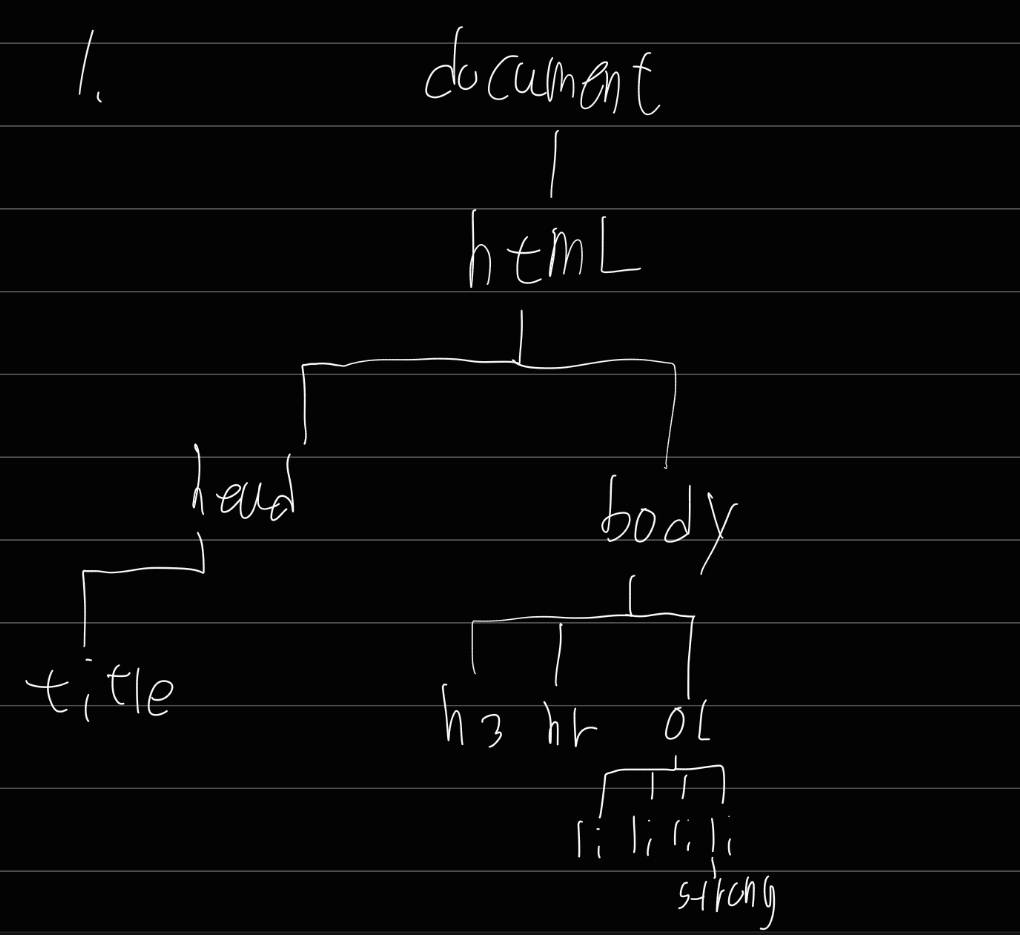 1. document
html
head
body
title
h3 hr OL
li li li li
strong